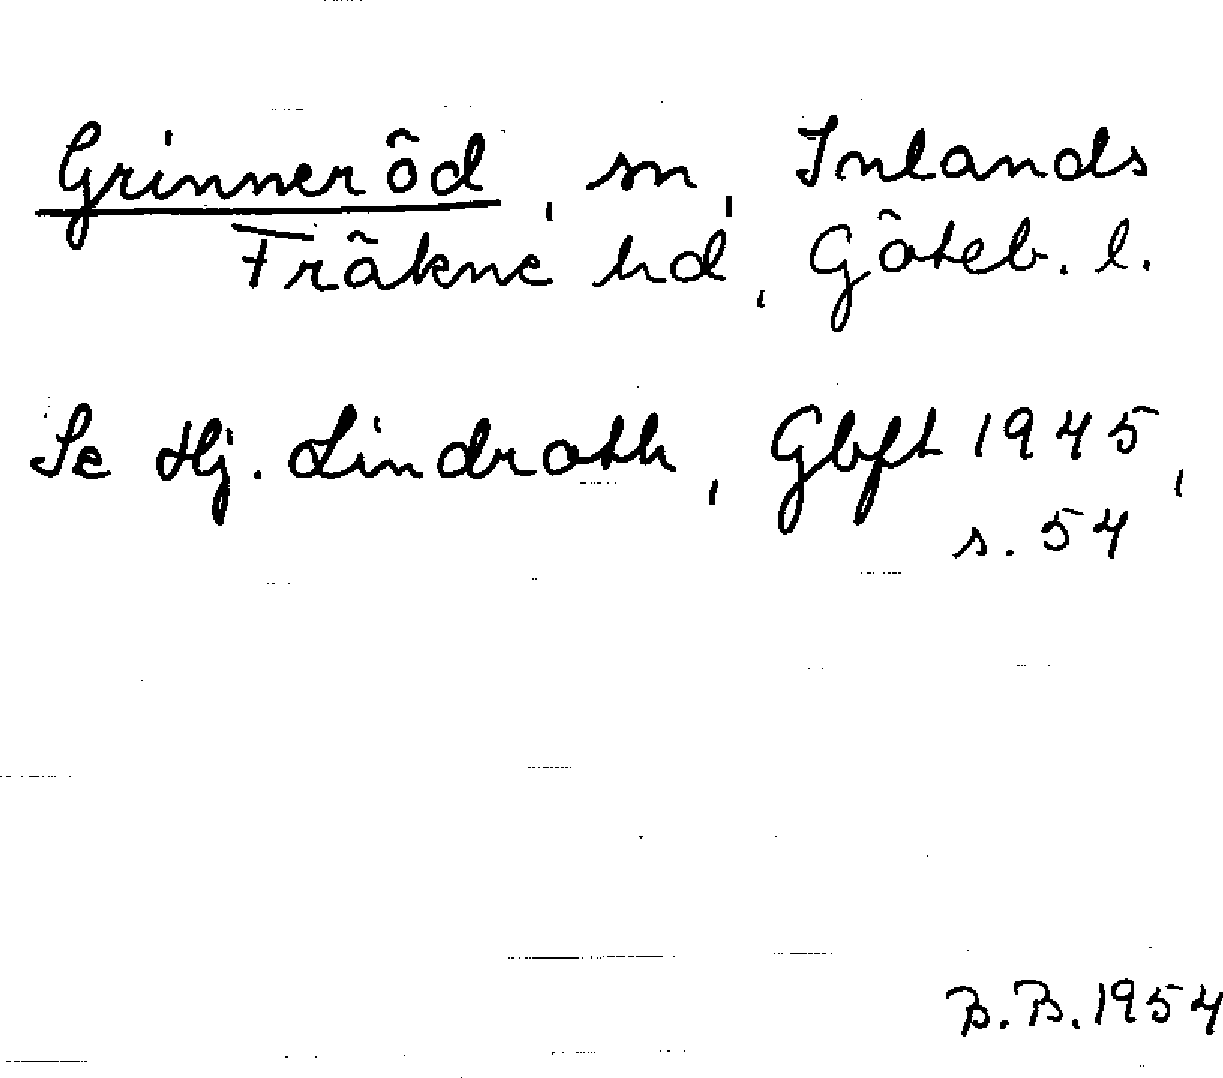 Grinneröd, sn, Inlands
Fräkne hd, Göteb. l.
Se Hj. Lindroth, Gbft 1945,
s. 54
B.B. 1954